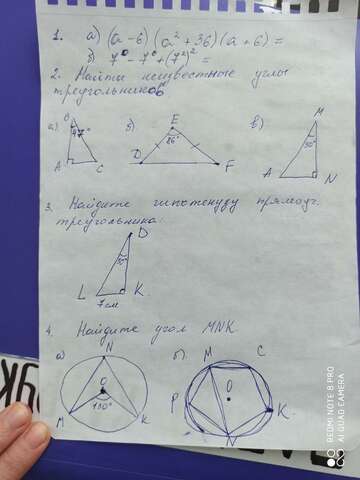 1. а) (a-6)(a²+36)(a+6)=
б) 7⁰-7⁰+(7²)²=
2. Найти неизвестные углы
треугольников
а) б) в)
B 47° A C
E 86° D F
M 30° A N
3. Найдите гипотенузу прямоуг.
треугольника:
D
L 7см K
4. Найдите угол MNK
а) б)
N O 100° M K
M C O P K N
REDMI NOTE 8 PRO
AI QUAD CAMERA